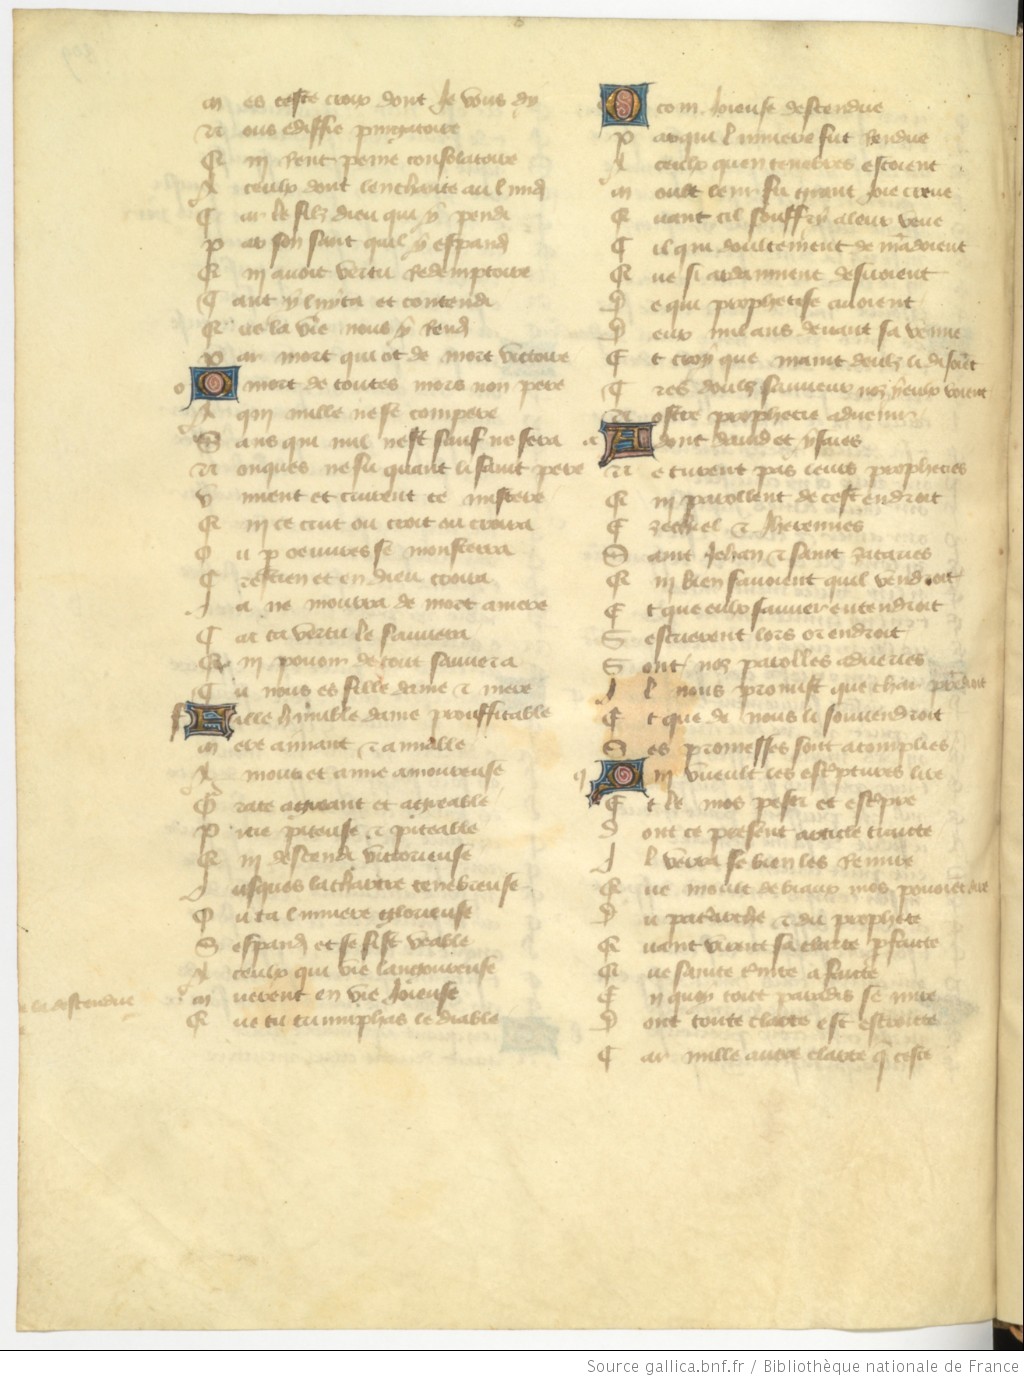 M es ceste croix dont Je vous dy
N ous ediffie purgatoire
Q ui Rent peine consolatoire
A ceulx dont lenchante au lundi
C ar le filz dieu qui y pendi
P ar son sanc quil y espandi
Q ui avoit vertu Redemptoire
T ant y luita et contendi
Q ue la vie nous y Rendi
P ar mort qui ot de mort victoire
O mort de toutes mors non pere
A qui nulle ne se compere
S ans qui nul nest sauf ne sera
N onques ne fu quant li saint pere
V indrent et crurent ce mistere
Q ui ce crut ou croit ou croira
O u p oeuvres se monstrera
C restien et en dieu croira
J a ne mourra de mort amere
C ar ta vertu le sauvera
Q ui pouoir de tout sauver a
C u nous es fille dame et mere
F ille humble dame prouffitable
M ere amant et amiable
A mour et amie amoureuse
G race agreant et agreable
P itie piteuse et piteable
Q ui descendi victorieuse
J usques la chartre tenebreuse
O u ta lumiere glorieuse
S espandi et se fist veable
A ceulx qui vie langoureuse
M uerent en vie Joieuse
Q ue tu triumphas le diable
la descendue
O com Joieuse descendue
P ar qui lumiere fut Rendue
A ceulx quen tenebres estoient
M oult leur fu grant Joie creue
Q uant cil souffry a leur veue
C il qui doulcement demandoient
Q ue si ardanment desiroient
D e qui prophetise avoient
D eux mil ans devant sa venue
E t croy que maint deulz li disoient
T res doulz sauveur noz yeulx voient
N ostre prophecie advenue
A dont david et ysaies
N e turent pas leurs prophecies
Q ui parollent de cest endroit
E zechiel et Jheremies
S aint Jehan et saint zacaries
Q ui bien savoient quil vendroit
E t que eulx sauver entendroit
S escrierent lors orendroit
S ont noz parolles averies
I l nous promist que char prendroit
E t que de nous li souvendroit
S es promesses sont acomplies
Q ui vueult les escriptures lire
E t le mos pestri et escripre
D ont ce present article traicte
I l verra se bien les Remire
Q ue moult de biaux mos pouoient dire
D u patriarche et du prophete
Q uant virent sa clarte parfaicte
Q ue sainte trinite a faicte
E n quoy tout paradis se mire
D ont toute clarte est estraicte
C ar nulle autre clarte que ceste
Source gallica.bnf.fr / Bibliothèque nationale de France